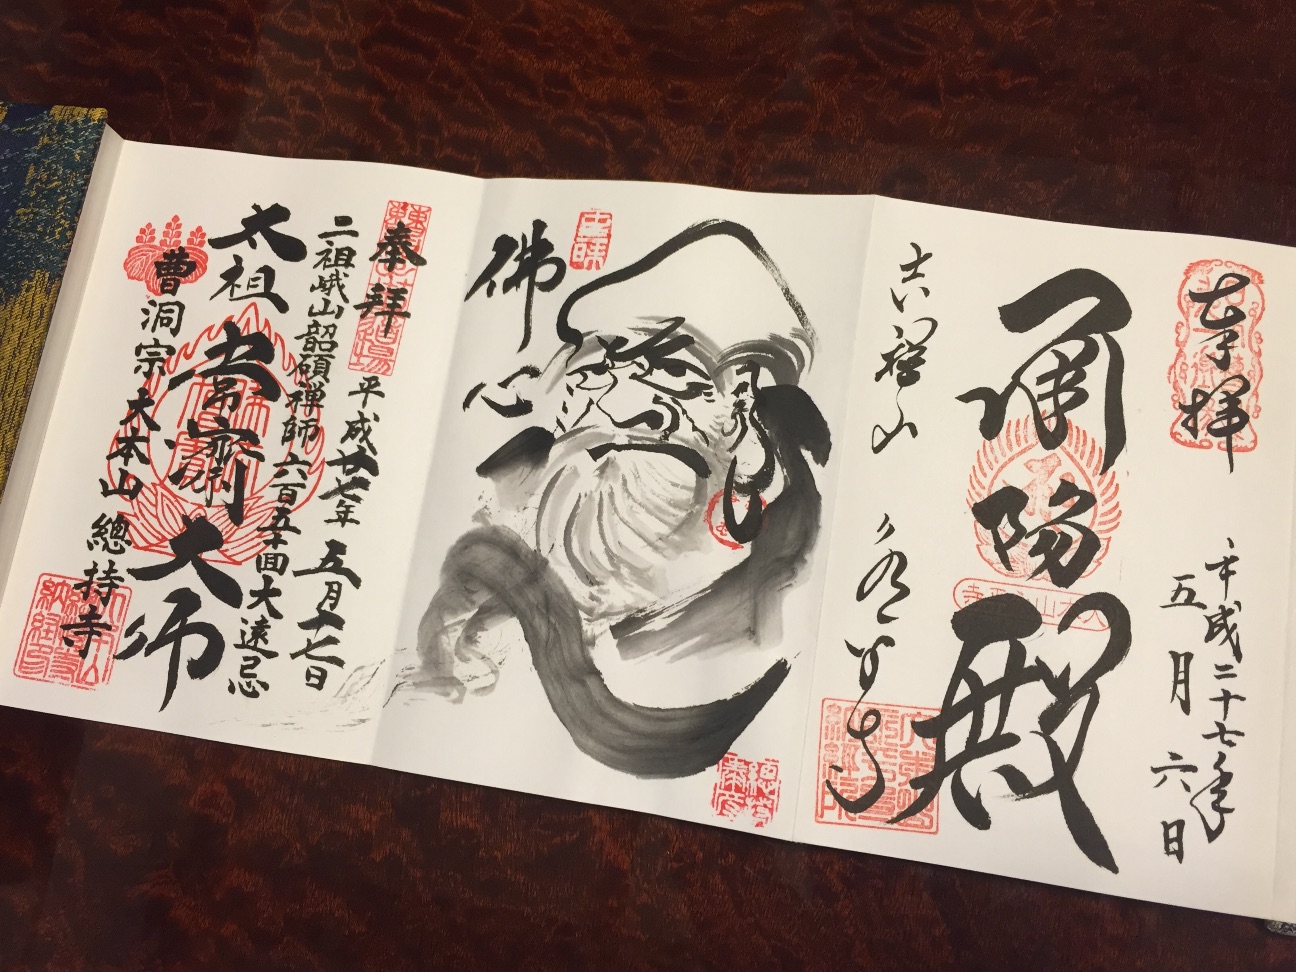 奉拝
平成二十七年
五月六日
承陽殿
吉祥山永平寺
佛心
奉拝
平成廿七年五月十七日
二祖峨山韶碩禅師六百五十回大遠忌
太祖常濟大師
曹洞宗大本山總持寺